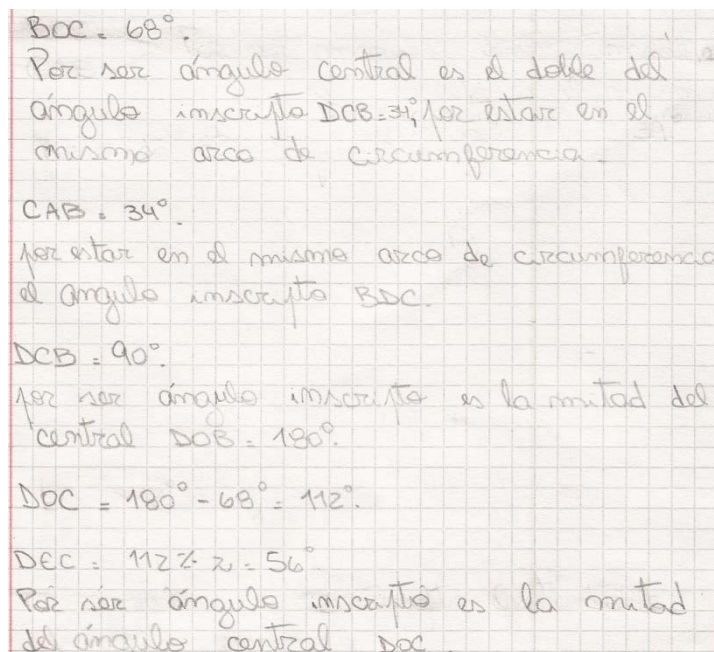 BOC = 68°.
Por ser ángulo central es el doble del
ángulo inscripto DCB=34°, por estar en el
mismo arco de circumferencia.
CAB = 34°.
por estar en el mismo arco de circumferencia
el angulo inscripto BDC.
DCB = 90°.
por ser ángulo inscripto es la mitad del
central DOB = 180°.
DOC = 180° - 68° = 112°.
DEC = 112 ÷ 2 = 56°
Por ser ángulo inscripto es la mitad
del ángulo central DOC.